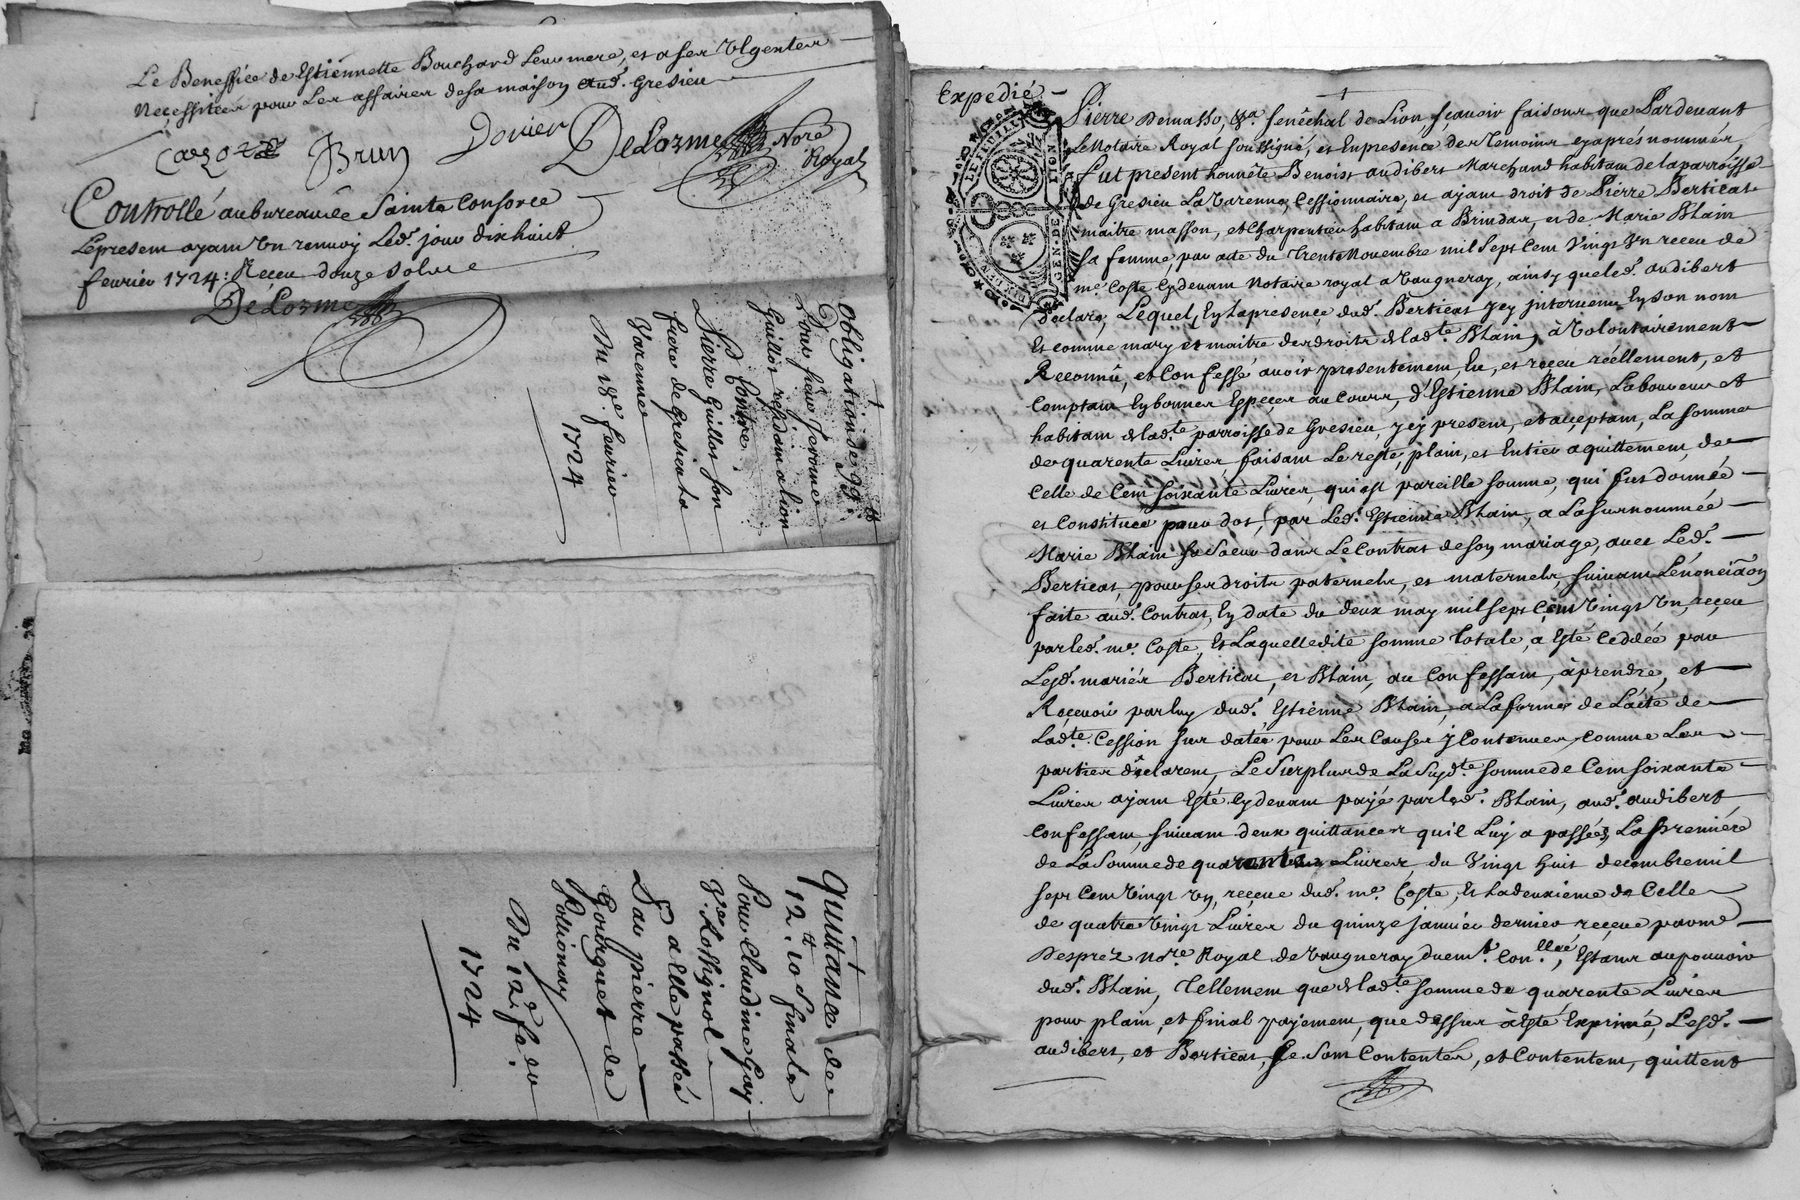 Le Beneffice de Estiennette Bouchard Leur mere, et a ses Urgentes
Necessitées pour Les affaires de sa maison aud. Gresieu
Brun Dorier DeLorme Nore Royal
Controllé au bureau de Sainte Consorce
Le present ayant Un renvoy Led. jour dix huit
fevrier 1724: Receu douze sols
DeLorme
Obligation de 99 tt
Pour sieur Jerome
Guillot residant a lion
Contre
Pierre Guillot son
frere de Gresieu la
Varenne
Du 18e. fevrier
1724
Quittance de
12 tt 10 s finale
Pour Claudine Gay
Ve. Rossignol
a elle passée
Par pierre
Gorbignet de
Pollionay
Du 12e. fe.
1724
Expedié
GEN. DE LION
Pierre Demasso, Sgr. Senêchal de Lion, scavoir faisons que Pardevant
Le Notaire Royal soussigné, et En presence des Temoins cy aprés nommés,
fut present honnête Benoist audibert Marchand habitant de la parroisse
de Gresieu La Varenne, Cessionnaire, et ayant droit de Pierre Berticat
maitre masson, et Charpentier habitant a Brindas, et de Marie Blain
sa femme, par acte du Trente Novembre mil Sept Cent Vingt Un receu de
me. Coste Cy devant Notaire royal a Vaugneray, ainsy que led. audibert
declare, Lequel, En la presence dud. Berticat icy intervenu En son nom
Et comme mary et maitre des droits de lad.te Blain, à Volontairement
Reconnû, et Confessé avoir presentement Eu, et receu réellement, et
Comptant En bonnes Especes au Cours, d'Estienne Blain, Laboureur et
habitant de lad.te parroisse de Gresieu, icy present, et acceptant, La somme
de quarente Livres, faisant Le reste, plain, et Entier aquittement, de
Celle de Cent Soixante Livres, qui est pareille somme, qui fut donnée
et Constituée pour dot, par Led. Estienne Blain, a La surnommée
Marie Blain sa Soeur dans Le Contrat de son mariage, avec Led.
Berticat, pour ses droits paternels, et maternels, suivant L'énonciaôn
faite aud. Contrat, En date du deux may mil sept Cent Vingt Un, receu
par led. me. Coste, Et Laquelle dite somme Totale, a Esté Ceddée par
Lesd. mariés Berticat, et Blain, au Confessant, à prendre, et
Recevoir par luy dud. Estienne Blain, a La forme de L'acte de
Lad.te Cession sus datée pour Les Causes y Contenues, Comme Les
parties declarent, Le Surplus de La susd.te somme de Cent Soixante
Livres ayant Esté Cy devant payé par led. Blain, aud. audibert
Confessant, suivant deux quittances qu'il Luy a passées, La premiére
de La Somme de quarante Livres, du Vingt huit decembre mil
sept Cent Vingt Un, receue dud. me. Coste, Et La deuxieme de Celle
de quatre Vingt Livres du quinze janvier dernier receue par me.
Desprez Nore. Royal de Vaugneray duemt. Con.llée, Estans au pouvoir
dud. Blain, Tellement que de lad.te somme de quarente Livres
pour plain, et final payement, que dessus à Esté Exprimé, Lesd.
audibert, et Berticat, se sont Contentés, et Contentent, quittent